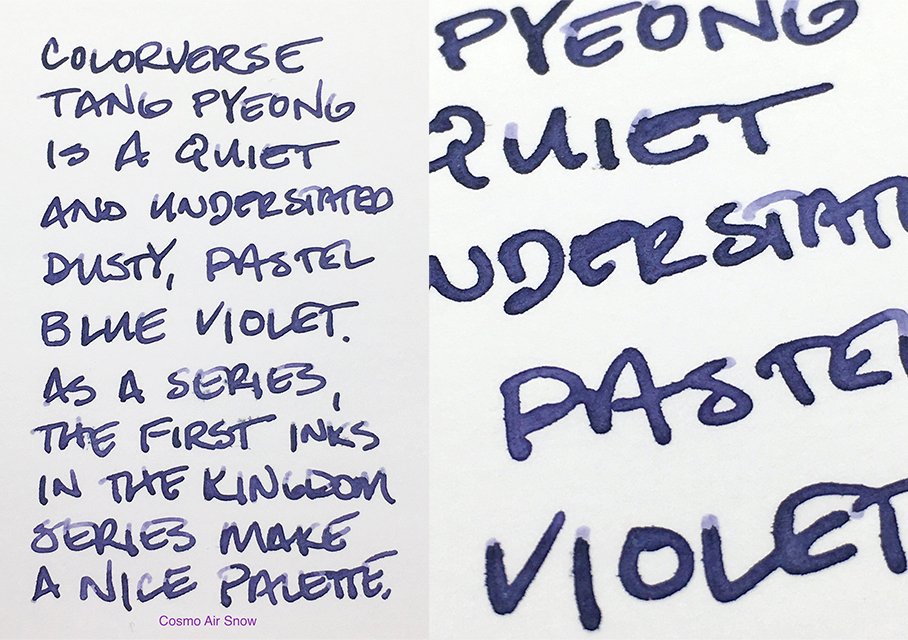 COLORVERSE
TANG PYEONG
IS A QUIET
AND UNDERSTATED
DUSTY, PASTEL
BLUE VIOLET.
AS A SERIES,
THE FIRST INKS
IN THE KINGDOM
SERIES MAKE
A NICE PALETTE.
Cosmo Air Snow
PYEONG
QUIET
NDERSTATE
PASTEL
VIOLET